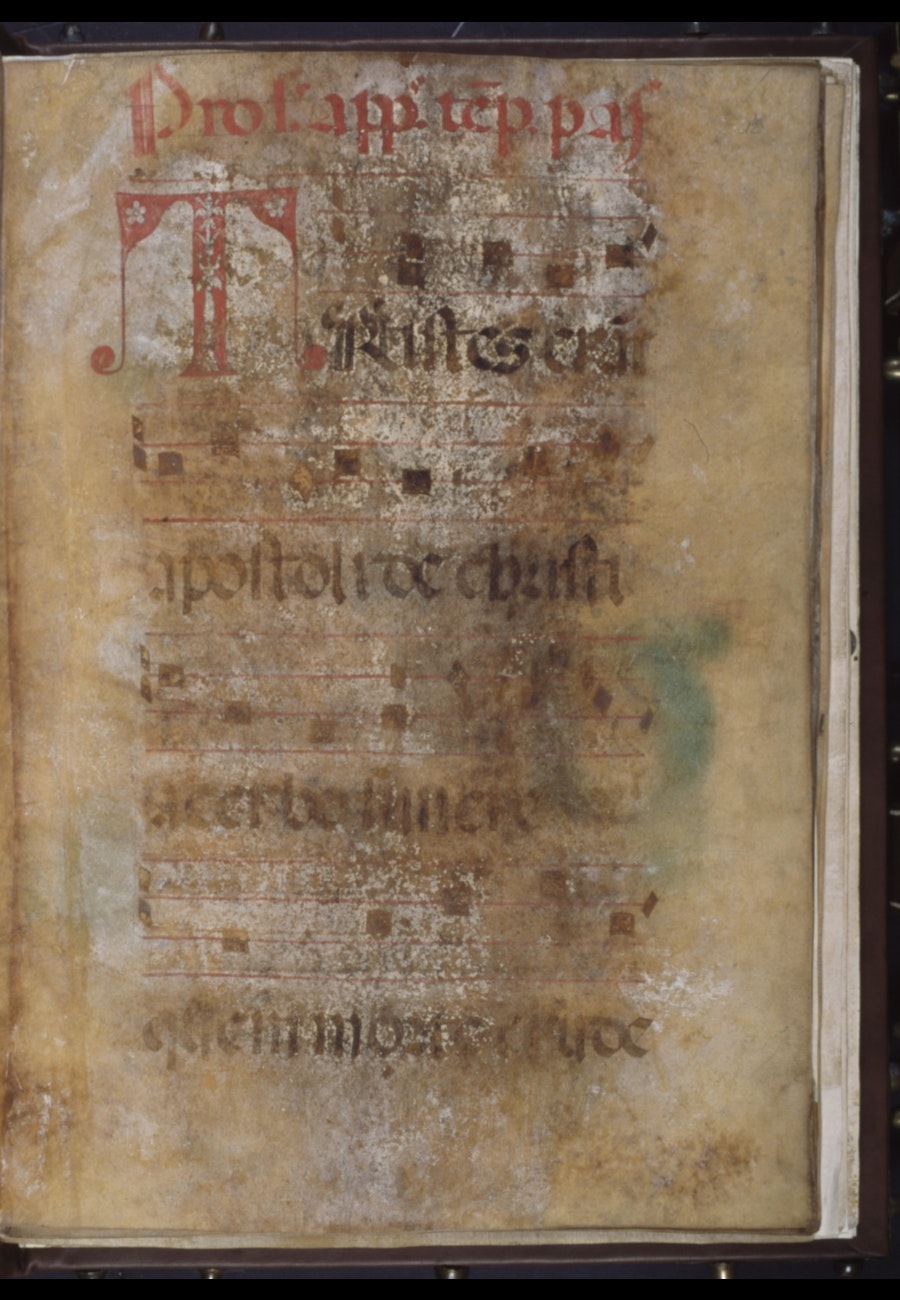 Pro s. app. tēp. pas
TRistes erāt
apostoli de christi
acerbo funere
quem morte crude